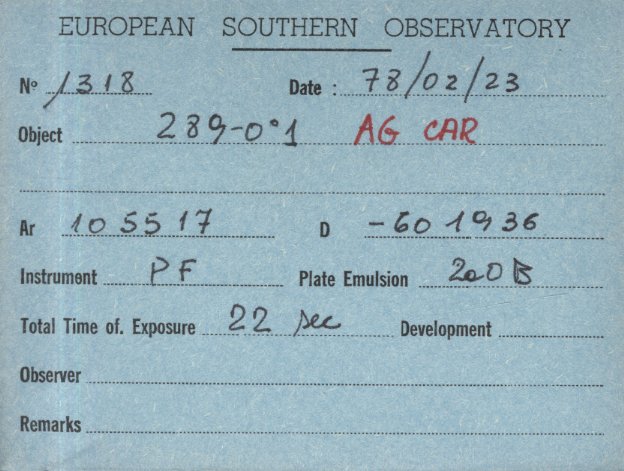 EUROPEAN SOUTHERN OBSERVATORY
Nº 1318 Date : 78/02/23
Object 289-0°1 AG CAR
Ar 10 55 17 D -60 19 36
Instrument PF Plate Emulsion 2a0B
Total Time of. Exposure 22 sec Development
Observer
Remarks